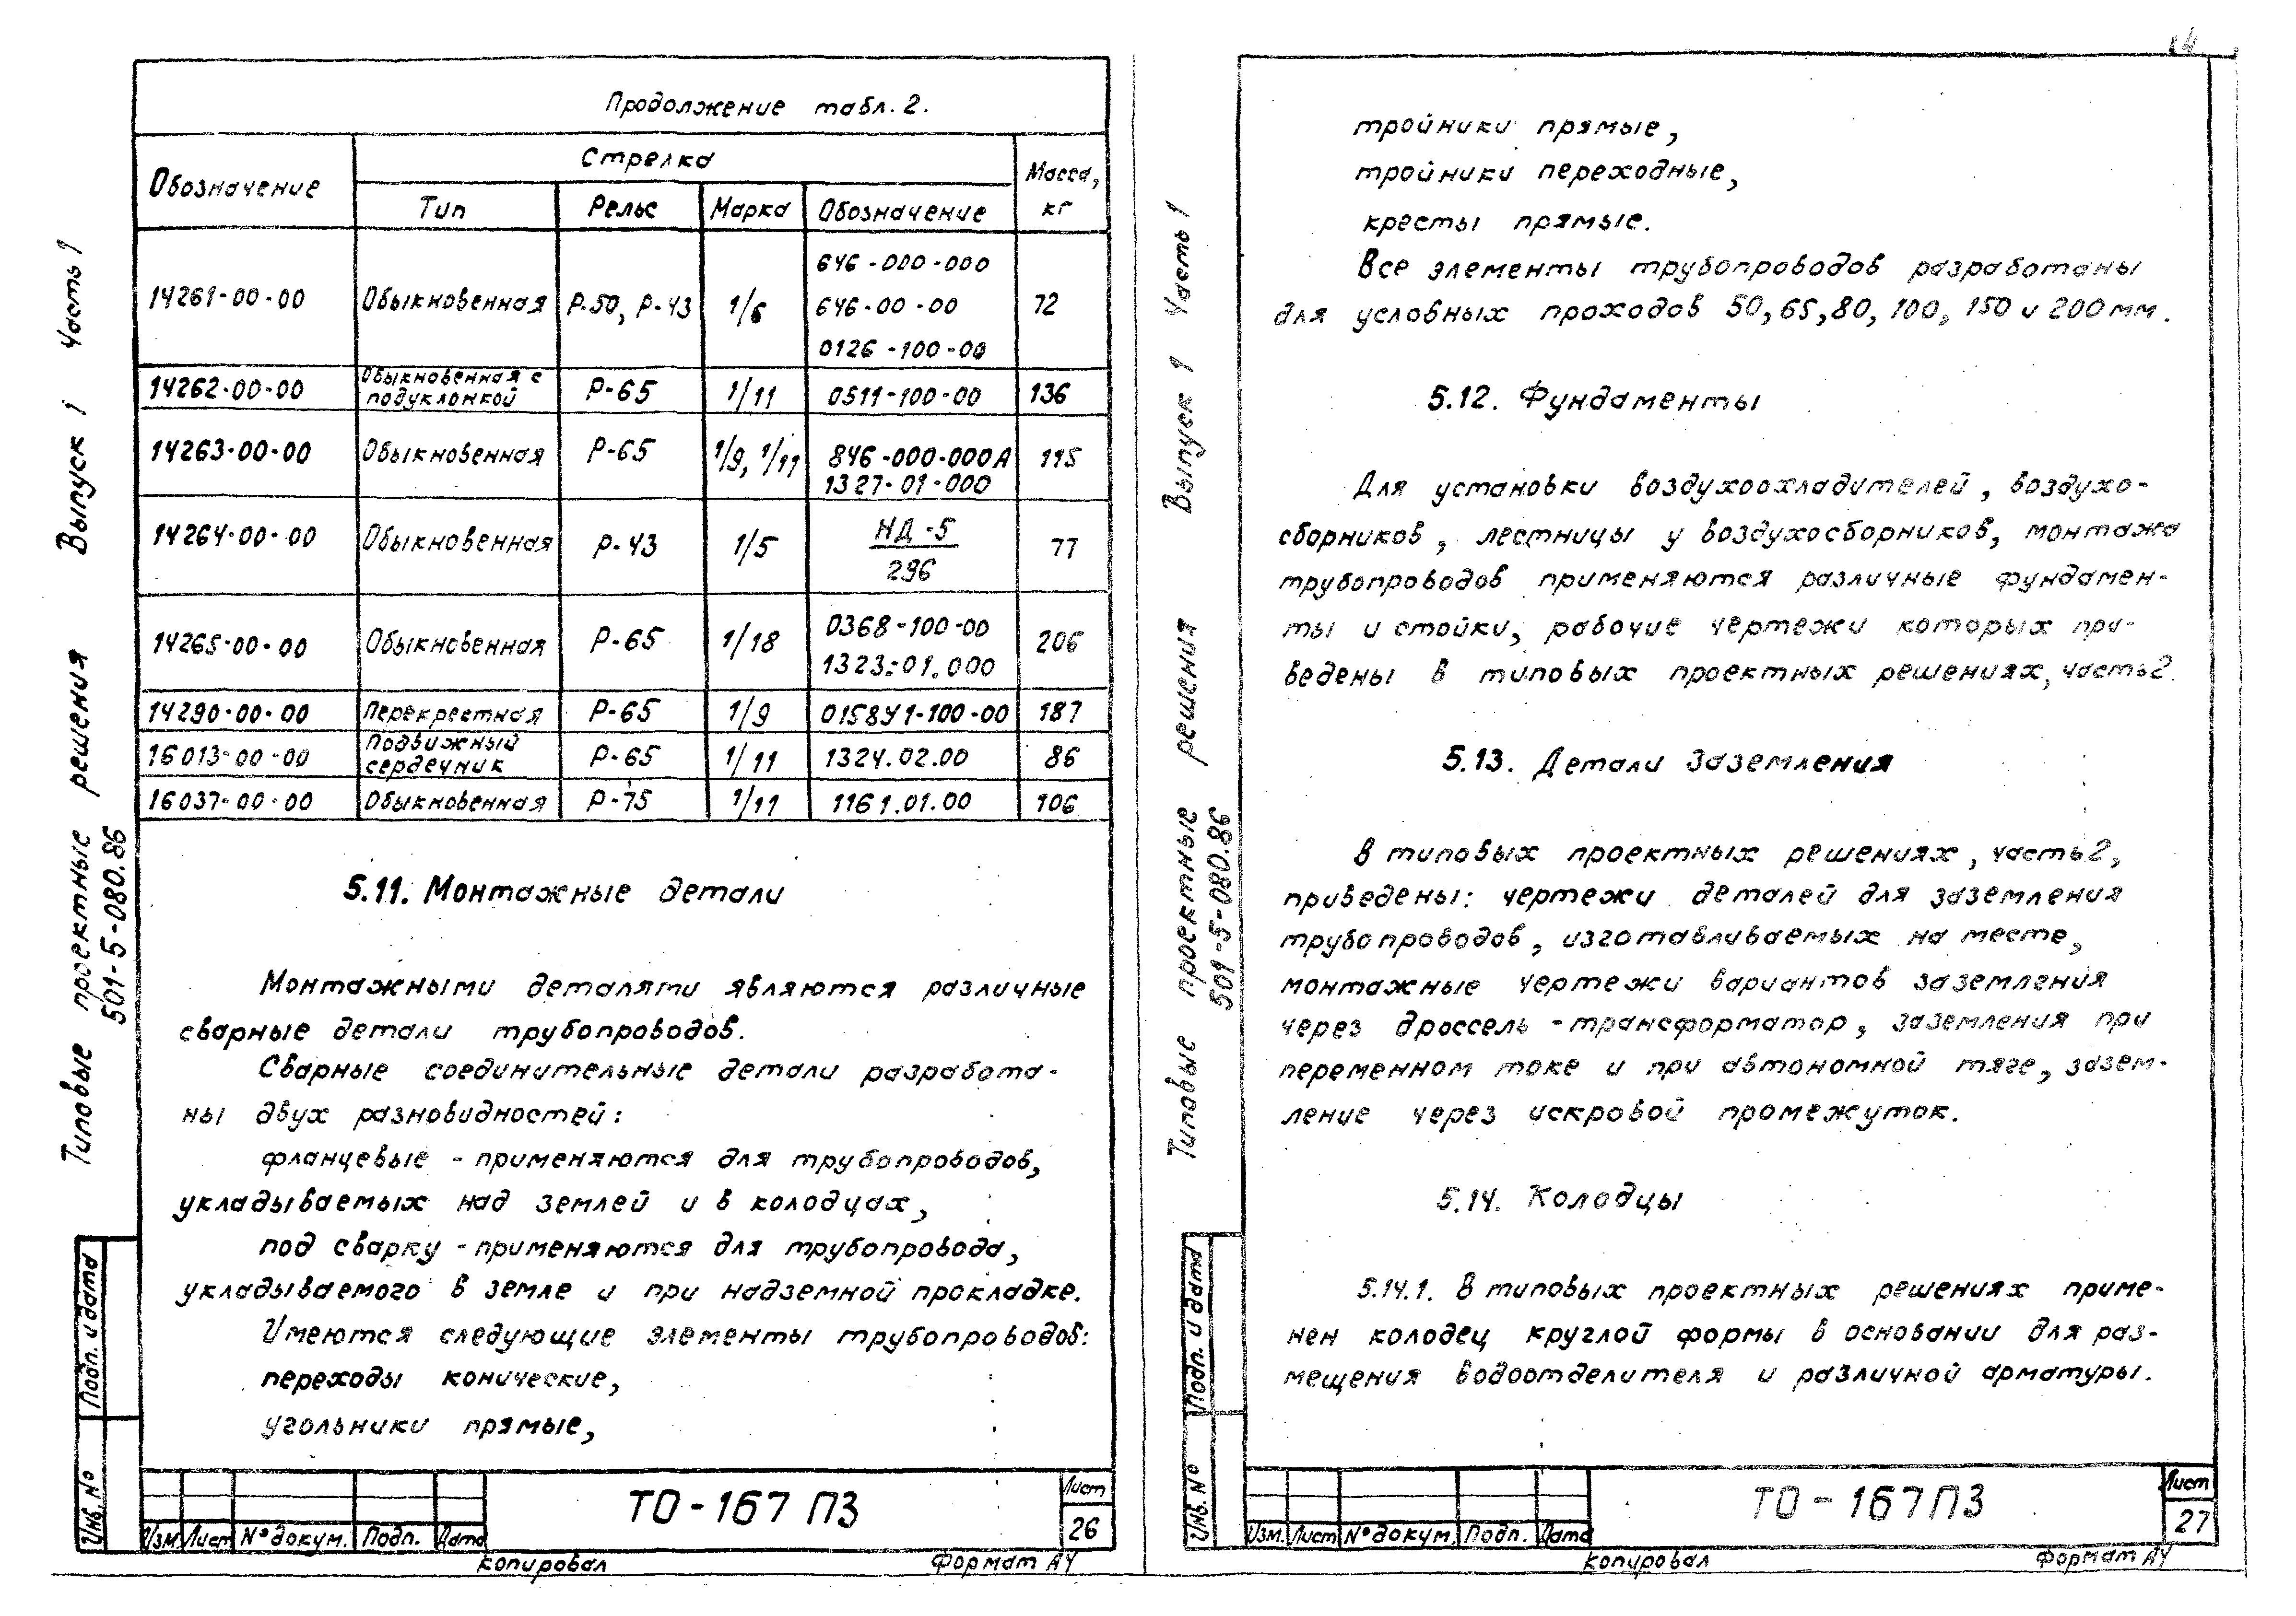 Продолжение табл. 2.
Обозначение Стрелка Масса, кг
Тип Рельс Марка Обозначение
14261-00-00 Обыкновенная Р-50, Р-43 1/6 646-000-000 72
646-00-00
0126-100-00
14262-00-00 Обыкновенная с подуклонкой Р-65 1/11 0511-100-00 136
14263-00-00 Обыкновенная Р-65 1/9, 1/11 846-000-000А 115
1327-01-000
14264-00-00 Обыкновенная Р-43 1/5 НД-5 77
296
14265-00-00 Обыкновенная Р-65 1/18 0368-100-00 206
1323.01.000
14290-00-00 Перекрестная Р-65 1/9 0158У1-100-00 187
16013-00-00 Подвижный сердечник Р-65 1/11 1324.02.00 86
16037-00-00 Обыкновенная Р-75 1/11 1161.01.00 106
5.11. Монтажные детали
Монтажными деталями являются различные
сварные детали трубопроводов.
Сварные соединительные детали разработа-
ны двух разновидностей:
фланцевые - применяются для трубопроводов,
укладываемых над землей и в колодцах,
под сварку - применяются для трубопровода,
укладываемого в земле и при надземной прокладке.
Имеются следующие элементы трубопроводов:
переходы конические,
угольники прямые,
Типовые проектные решения Выпуск 1 Часть 1
501-5-080.86
Подп. и дата
Инв. №
Изм. Лист № докум. Подп. Дата
ТО-167 ПЗ
Лист
26
Копировал Формат А4
14
тройники прямые,
тройники переходные,
кресты прямые.
Все элементы трубопроводов разработаны
для условных проходов 50, 65, 80, 100, 150 и 200 мм.
5.12. Фундаменты
Для установки воздухоохладителей, воздухо-
сборников, лестницы у воздухосборников, монтажа
трубопроводов применяются различные фундамен-
ты и стойки, рабочие чертежи которых при-
ведены в типовых проектных решениях, часть 2.
5.13. Детали заземления
В типовых проектных решениях, часть 2,
приведены: чертежи деталей для заземления
трубопроводов, изготавливаемых на месте,
монтажные чертежи вариантов заземления
через дроссель-трансформатор, заземления при
переменном токе и при автономной тяге, зазем-
ление через искровой промежуток.
5.14. Колодцы
5.14.1. В типовых проектных решениях приме-
нен колодец круглой формы в основании для раз-
мещения водоотделителя и различной арматуры.
Типовые проектные решения Выпуск 1 Часть 1
501-5-080.86
Подп. и дата
Инв. №
Изм. Лист № докум. Подп. Дата
ТО-167 ПЗ
Лист
27
Копировал Формат А4